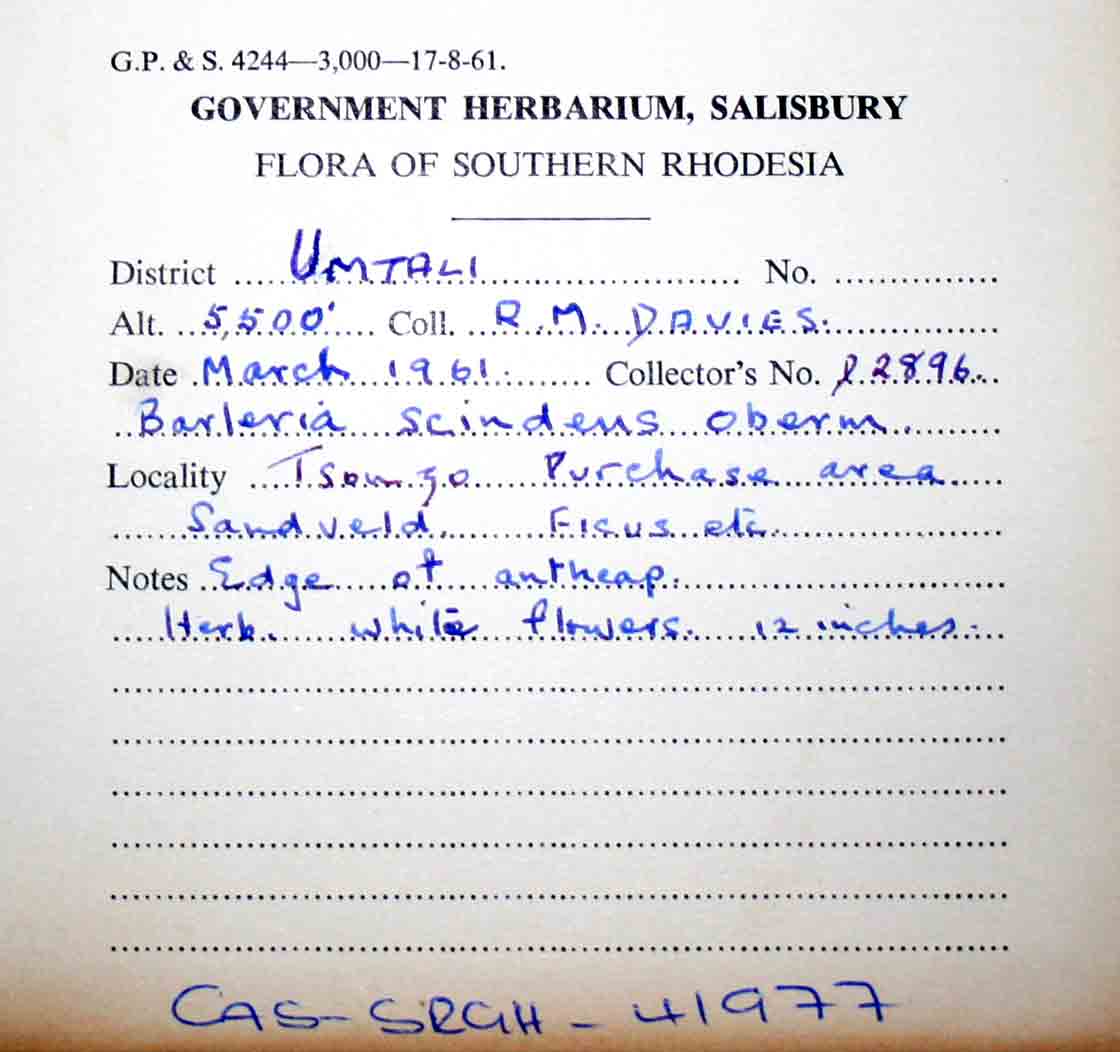 G.P. & S. 4244—3,000—17-8-61.
GOVERNMENT HERBARIUM, SALISBURY
FLORA OF SOUTHERN RHODESIA
District UMTALI No.
Alt. 5,500' Coll. R. M. DAVIES.
Date March 1961. Collector's No. 2896.
Barleria scindens oberm.
Locality Purchase area
Sandveld. Ficus etc.
Notes Edge of antheap.
Herb. white flowers. 12 inches.
CAS-SRGH-41977